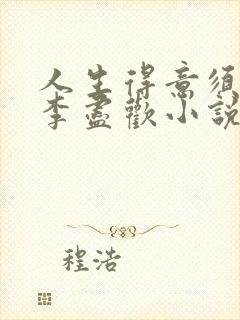 人生得意須
李盡歡小說
程浩